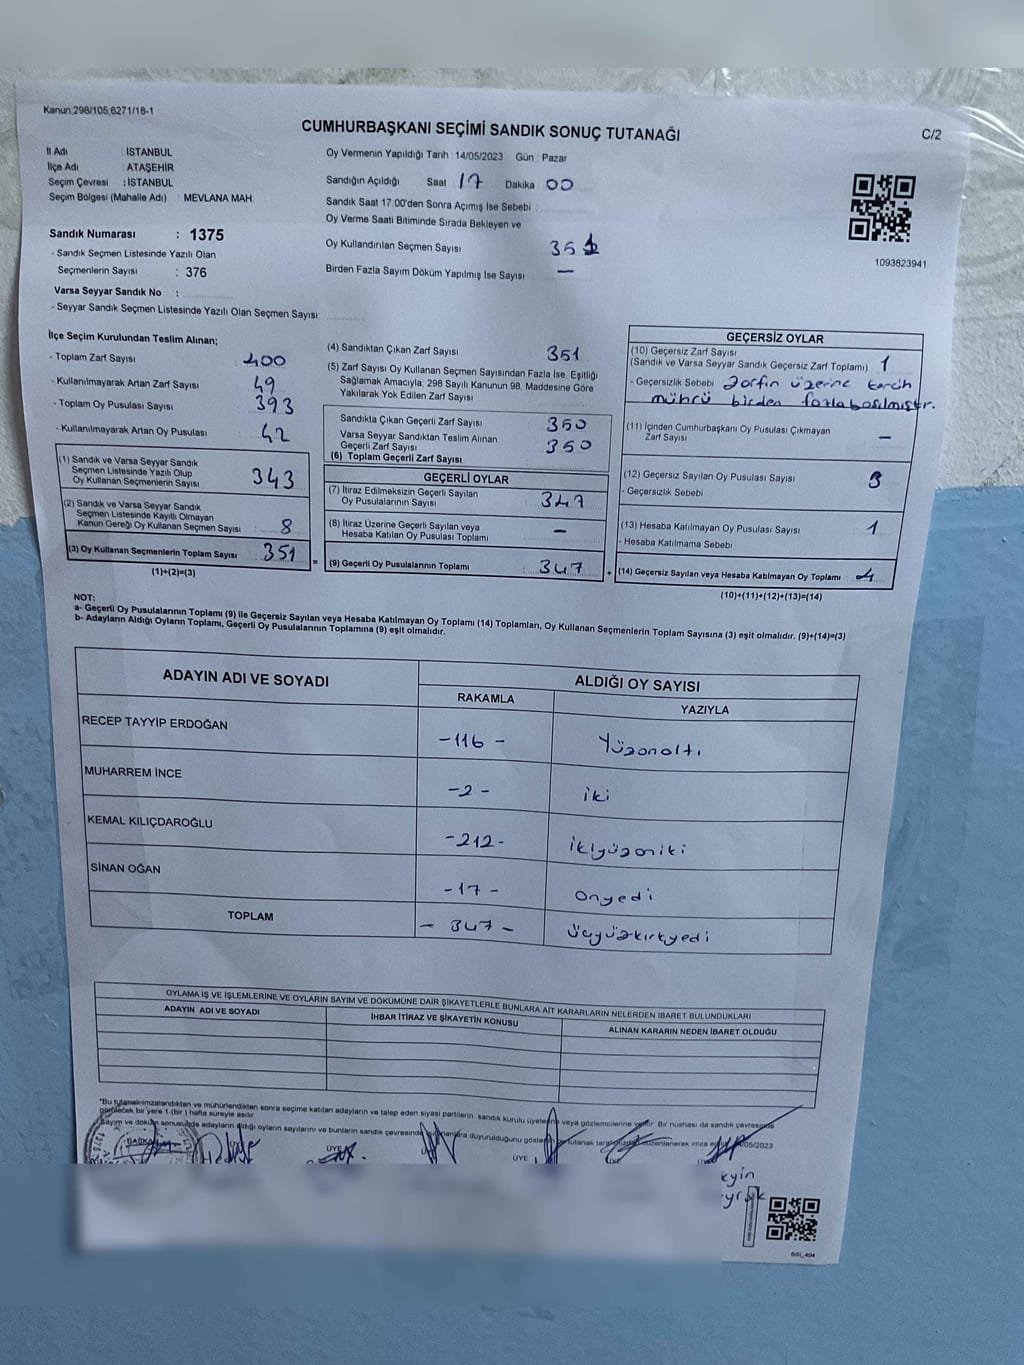 Kanun;298/105;6271/18-1
CUMHURBAŞKANI SEÇİMİ SANDIK SONUÇ TUTANAĞI
C/2
İl Adı : İSTANBUL
İlçe Adı : ATAŞEHİR
Seçim Çevresi : İSTANBUL
Seçim Bölgesi (Mahalle Adı) : MEVLANA MAH.
Sandık Numarası : 1375
- Sandık Seçmen Listesinde Yazılı Olan
Seçmenlerin Sayısı : 376
Varsa Seyyar Sandık No :
- Seyyar Sandık Seçmen Listesinde Yazılı Olan Seçmen Sayısı:
Oy Vermenin Yapıldığı Tarih : 14/05/2023 Gün : Pazar
Sandığın Açıldığı Saat 17 Dakika 00
Sandık Saat 17:00'den Sonra Açılmış İse Sebebi :
Oy Verme Saati Bitiminde Sırada Bekleyen ve
Oy Kullandırılan Seçmen Sayısı 351
Birden Fazla Sayım Döküm Yapılmış İse Sayısı —
1093823941
İlçe Seçim Kurulundan Teslim Alınan;
- Toplam Zarf Sayısı 400
- Kullanılmayarak Artan Zarf Sayısı 49
- Toplam Oy Pusulası Sayısı 393
- Kullanılmayarak Artan Oy Pusulası 42
(1) Sandık ve Varsa Seyyar Sandık
Seçmen Listesinde Yazılı Olup
Oy Kullanan Seçmenlerin Sayısı 343
(2) Sandık ve Varsa Seyyar Sandık
Seçmen Listesinde Kayıtlı Olmayan
Kanun Gereği Oy Kullanan Seçmen Sayısı 8
(3) Oy Kullanan Seçmenlerin Toplam Sayısı 351
(1)+(2)=(3)
(4) Sandıktan Çıkan Zarf Sayısı 351
(5) Zarf Sayısı Oy Kullanan Seçmen Sayısından Fazla İse, Eşitliği
Sağlamak Amacıyla, 298 Sayılı Kanunun 98. Maddesine Göre
Yakılarak Yok Edilen Zarf Sayısı
Sandıkta Çıkan Geçerli Zarf Sayısı 350
Varsa Seyyar Sandıktan Teslim Alınan
Geçerli Zarf Sayısı 350
(6) Toplam Geçerli Zarf Sayısı
GEÇERLİ OYLAR
(7) İtiraz Edilmeksizin Geçerli Sayılan
Oy Pusulalarının Sayısı 347
(8) İtiraz Üzerine Geçerli Sayılan veya
Hesaba Katılan Oy Pusulası Toplamı —
= (9) Geçerli Oy Pusulalarının Toplamı 347
GEÇERSİZ OYLAR
(10) Geçersiz Zarf Sayısı
(Sandık ve Varsa Seyyar Sandık Geçersiz Zarf Toplamı) 1
- Geçersizlik Sebebi Zarfın üzerine tercih
mührü birden fazla basılmıştır.
(11) İçinden Cumhurbaşkanı Oy Pusulası Çıkmayan
Zarf Sayısı —
(12) Geçersiz Sayılan Oy Pusulası Sayısı
- Geçersizlik Sebebi
(13) Hesaba Katılmayan Oy Pusulası Sayısı 1
- Hesaba Katılmama Sebebi
+ (14) Geçersiz Sayılan veya Hesaba Katılmayan Oy Toplamı 4
(10)+(11)+(12)+(13)=(14)
NOT:
a- Geçerli Oy Pusulalarının Toplamı (9) ile Geçersiz Sayılan veya Hesaba Katılmayan Oy Toplamı (14) Toplamları, Oy Kullanan Seçmenlerin Toplam Sayısına (3) eşit olmalıdır. (9)+(14)=(3)
b- Adayların Aldığı Oyların Toplamı, Geçerli Oy Pusulalarının Toplamına (9) eşit olmalıdır.
ADAYIN ADI VE SOYADI
ALDIĞI OY SAYISI
RAKAMLA YAZIYLA
RECEP TAYYİP ERDOĞAN -116- Yüzonaltı
MUHARREM İNCE -2- iki
KEMAL KILIÇDAROĞLU -212- ikiyüzoniki
SİNAN OĞAN -17- Onyedi
TOPLAM - 347 - üçyüzkırkyedi
OYLAMA İŞ VE İŞLEMLERİNE VE OYLARIN SAYIM VE DÖKÜMÜNE DAİR ŞİKAYETLERLE BUNLARA AİT KARARLARIN NELERDEN İBARET BULUNDUKLARI
ADAYIN ADI VE SOYADI
İHBAR İTİRAZ VE ŞİKAYETİN KONUSU
ALINAN KARARIN NEDEN İBARET OLDUĞU
*Bu tutanak imzalandıktan ve mühürlendikten sonra seçime katılan adayların ve talep eden siyasi partilerin sandık kurulu üyelerine veya gözlemcilerine verilir. Bir nüshası da sandık çevresinde
görülecek bir yere 1 (bir) hafta süreyle asılır.
Sayım ve döküm sonusunda adayların aldığı oyların sayılarını ve bunların sandık çevresinde duyurulduğunu gösteren tarafımızdan düzenlenerek imza 05/2023
BAŞKAN
ÜYE
ÜYE